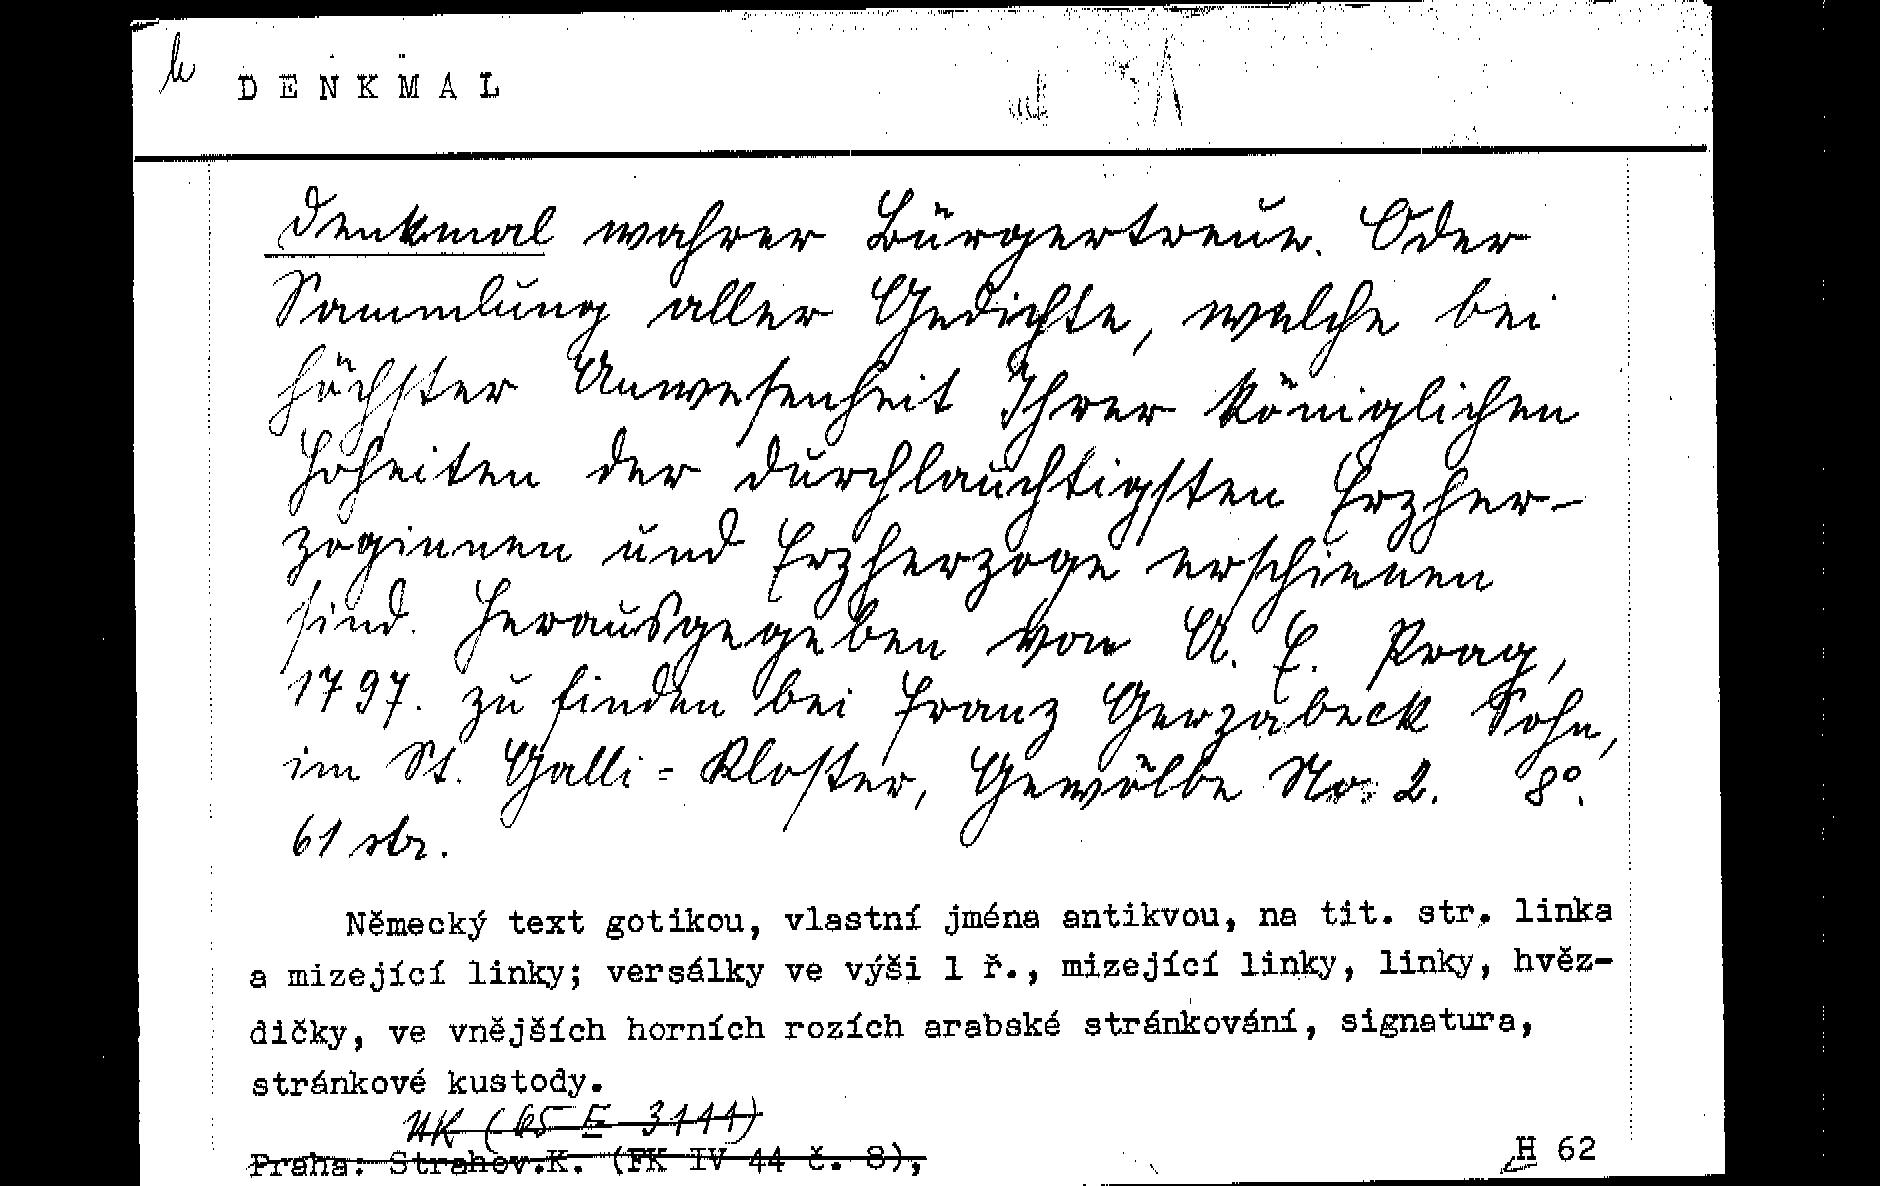 DENKMAL
Denkmal wahrer Bürgertreue. Oder
Sammlung aller Gedichte, welche bei
höchster Anwesenheit Ihrer Königlichen
Hoheiten der durchlauchtigsten Erzher-
zoginnen und Erzherzoge erschienen
sind. Herausgegeben von A. E. Prag,
1797. zu finden bei Franz Gerzabeck Sohn,
im St. Galli-Kloster, Gewölbe No. 2. 8°.
61 str.
Německý text gotikou, vlastní jména antikvou, na tit. str. linka
a mizející linky; versálky ve výši 1 ř., mizející linky, linky, hvěz-
dičky, ve vnějších horních rozích arabské stránkování, signatura,
stránkové kustody.
UK (65 E 3141)
Praha: Strahov.K. (FK IV 44 č. 8),
H 62